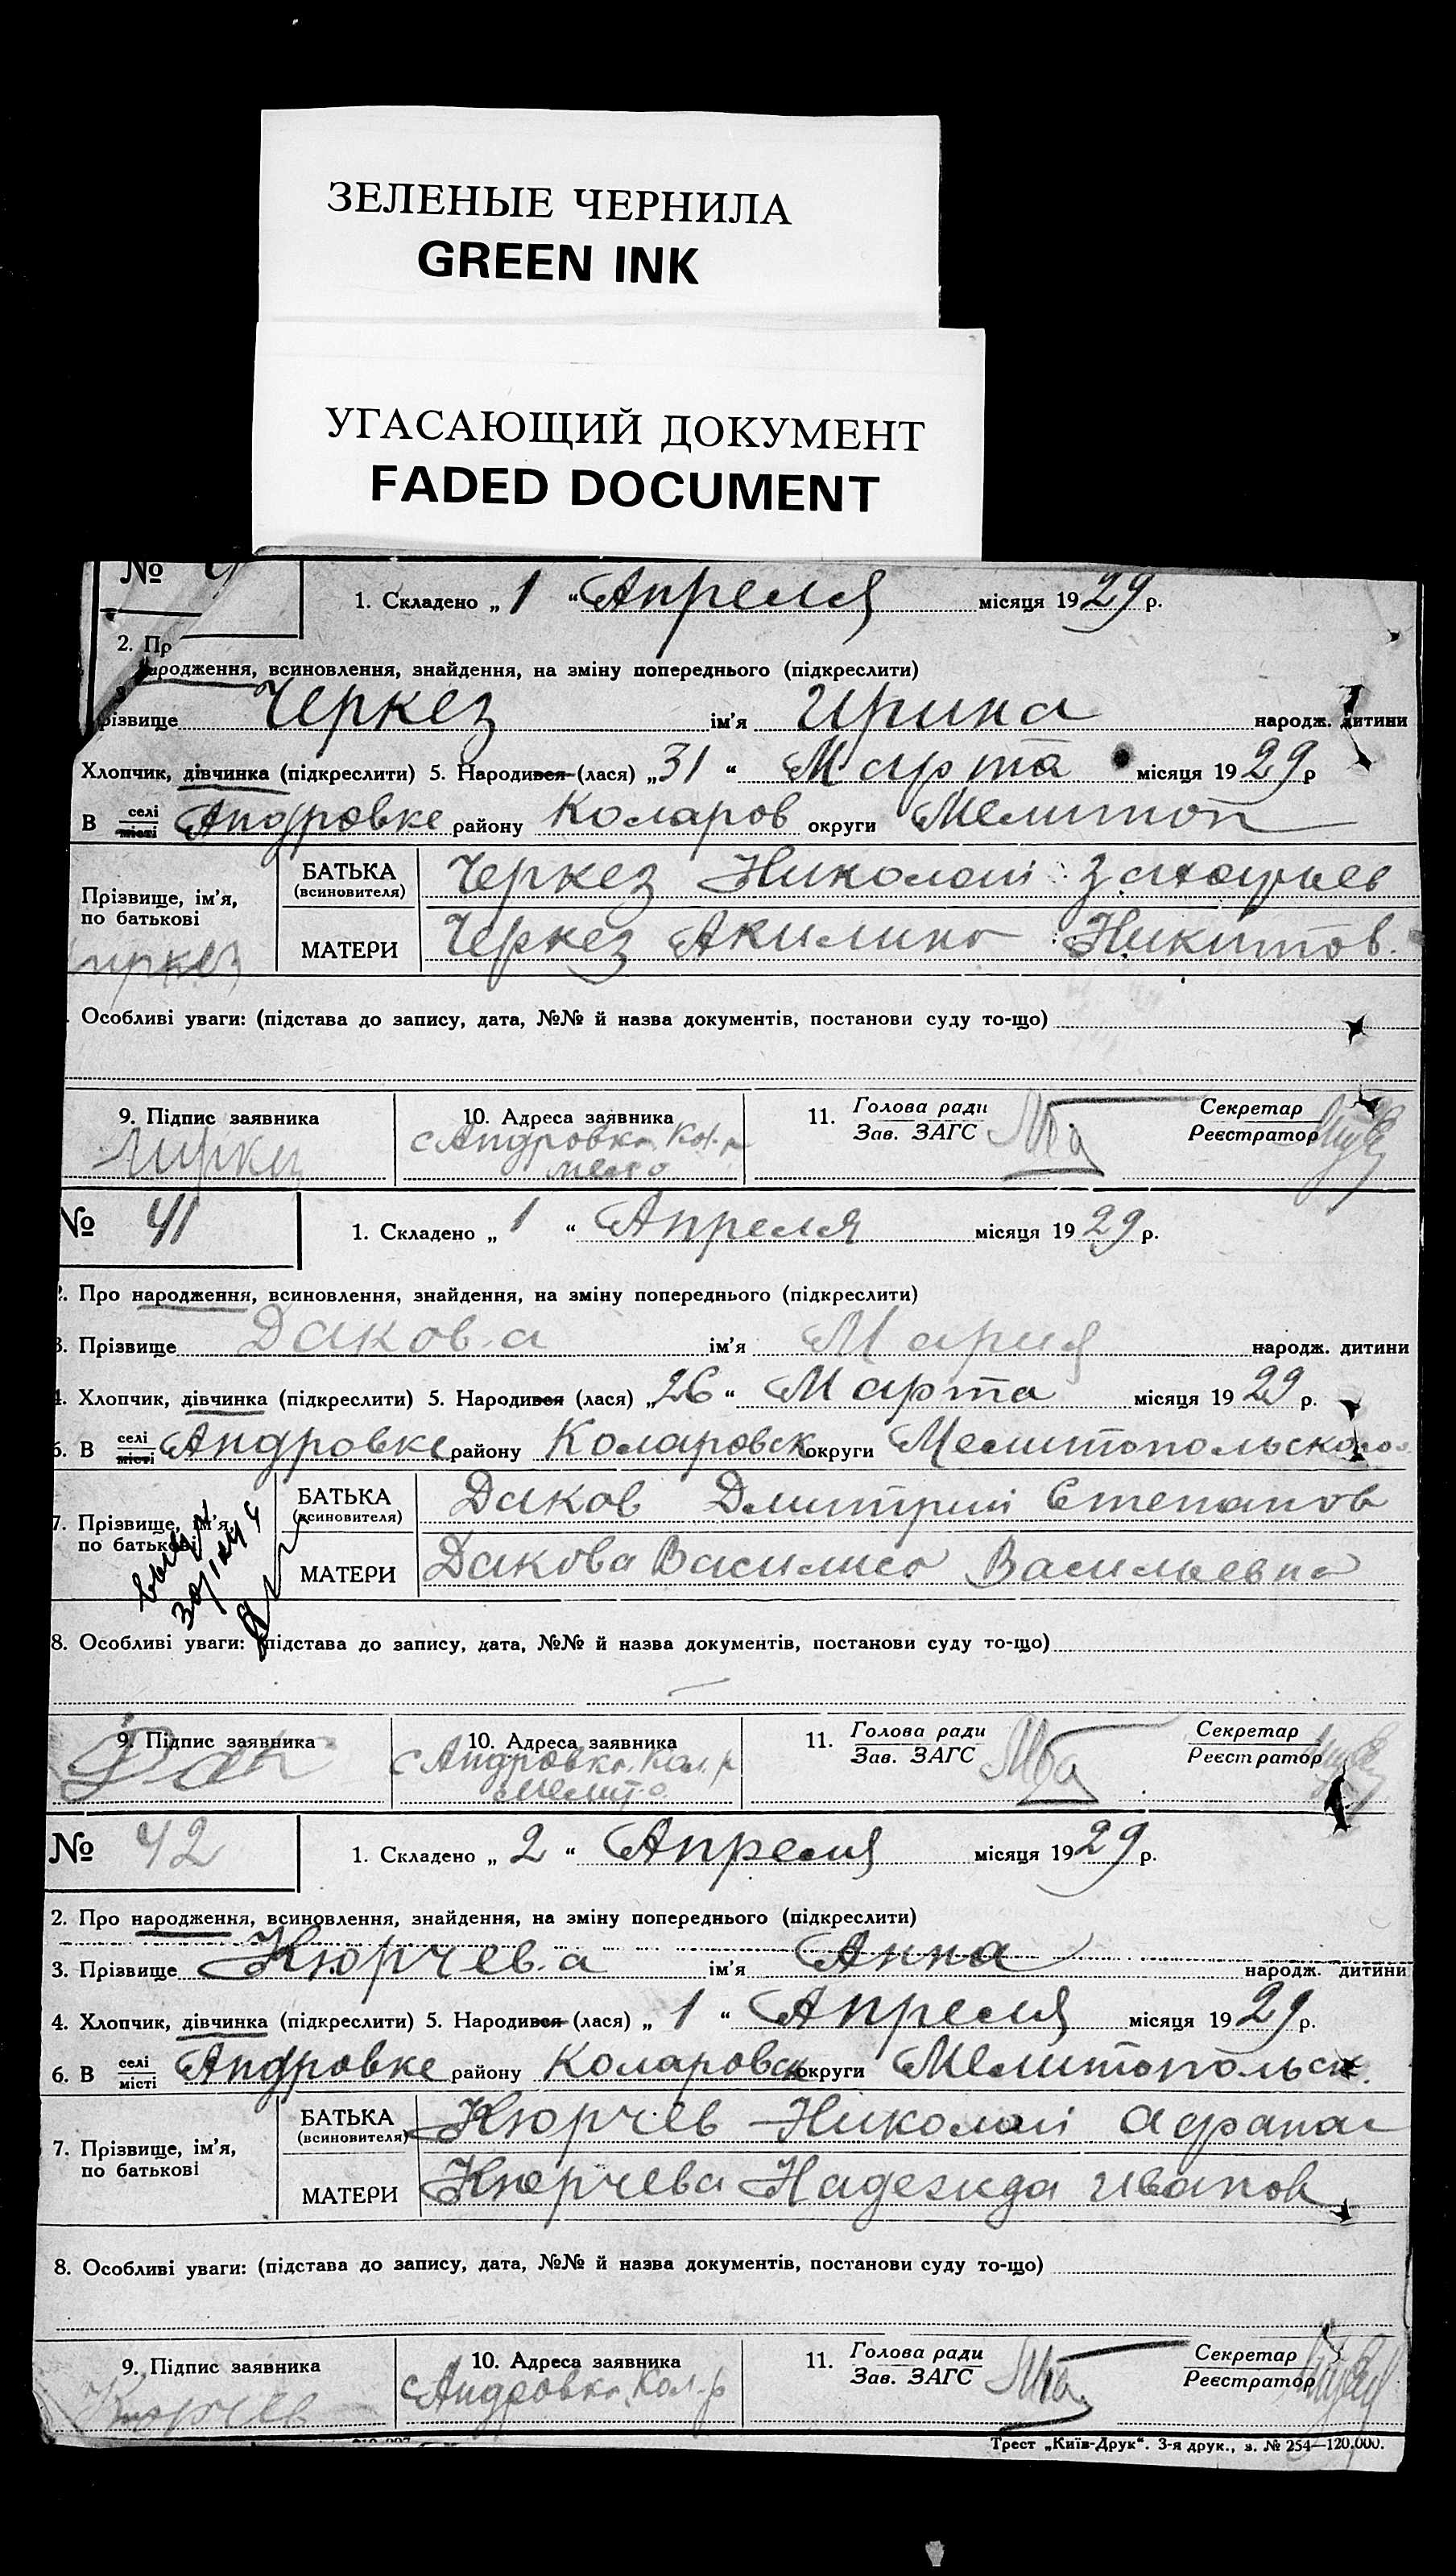 ЗЕЛЕНЫЕ ЧЕРНИЛА
GREEN INK
УГАСАЮЩИЙ ДОКУМЕНТ
FADED DOCUMENT
№
1. Складено „ 1 “ Апреля місяця 1929 р.
2. Пр
ародження, всиновлення, знайдення, на зміну попереднього (підкреслити)
різвище Черкез ім'я Ирина народж. дитини
Хлопчик, дівчинка (підкреслити) 5. Народився (лася) „31“ Марта місяця 1929 р
В селі місті Андровке району Коларов округи Мелитоп
Прізвище, ім'я, по батькові
БАТЬКА (всиновителя) Черкез Николай
МАТЕРИ Черкез Акилина Никитов.
Особливі уваги: (підстава до запису, дата, №№ й назва документів, постанови суду то-що)
9. Підпис заявника
10. Адреса заявника
с Андровка Кол. р
11. Голова ради Зав. ЗАГС
Секретар Реєстратор
№ 41
1. Складено „ 1 “ Апреля місяця 1929 р.
2. Про народження, всиновлення, знайдення, на зміну попереднього (підкреслити)
3. Прізвище Дакова ім'я Мария народж. дитини
4. Хлопчик, дівчинка (підкреслити) 5. Народився (лася) „26“ Марта місяця 1929 р.
6. В селі місті Андровке району Коларовск округи Мелитопольского
7. Прізвище, ім'я, по батькові
БАТЬКА (всиновителя) Даков Дмитрий Степанов
МАТЕРИ Дакова Василиса Васильевна
8. Особливі уваги: (підстава до запису, дата, №№ й назва документів, постанови суду то-що)
9. Підпис заявника
Дак
10. Адреса заявника
с Андровка Кол. р
Мелит. о
11. Голова ради Зав. ЗАГС
Секретар Реєстратор
№ 42
1. Складено „ 2 “ Апреля місяця 1929 р.
2. Про народження, всиновлення, знайдення, на зміну попереднього (підкреслити)
3. Прізвище Кюрчева ім'я Анна народж. дитини
4. Хлопчик, дівчинка (підкреслити) 5. Народився (лася) „ 1 “ Апреля місяця 1929 р.
6. В селі місті Андровке району Коларовск округи Мелитопольск.
7. Прізвище, ім'я, по батькові
БАТЬКА (всиновителя) Кюрчев Николай Афанас
МАТЕРИ Кюрчева Надежда Иванов
8. Особливі уваги: (підстава до запису, дата, №№ й назва документів, постанови суду то-що)
9. Підпис заявника
Кюрчев
10. Адреса заявника
с Андровка Кол. р
11. Голова ради Зав. ЗАГС
Секретар Реєстратор
Трест „Київ-Друк“. 3-я друк., з. № 254—120.000.